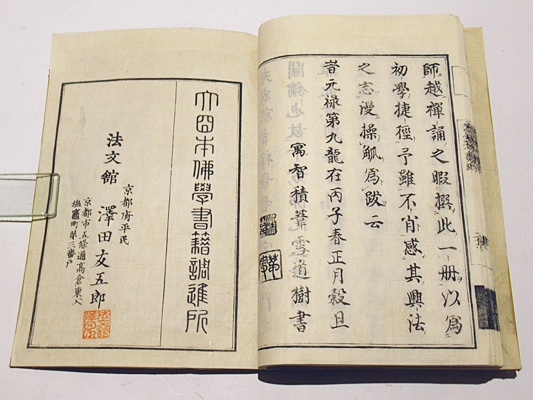 師越禪誦之暇撰此一册以爲
初學捷徑予雖不肖感其興法
之志漫操觚爲跋云
旹元祿第九龍在丙子春正月穀旦
寓智積葊雪道樹書
大日本佛學書籍調進所
京都府平民
法文館 澤田友五郎
京都市五條通高倉東入
塩竈町第三番戸